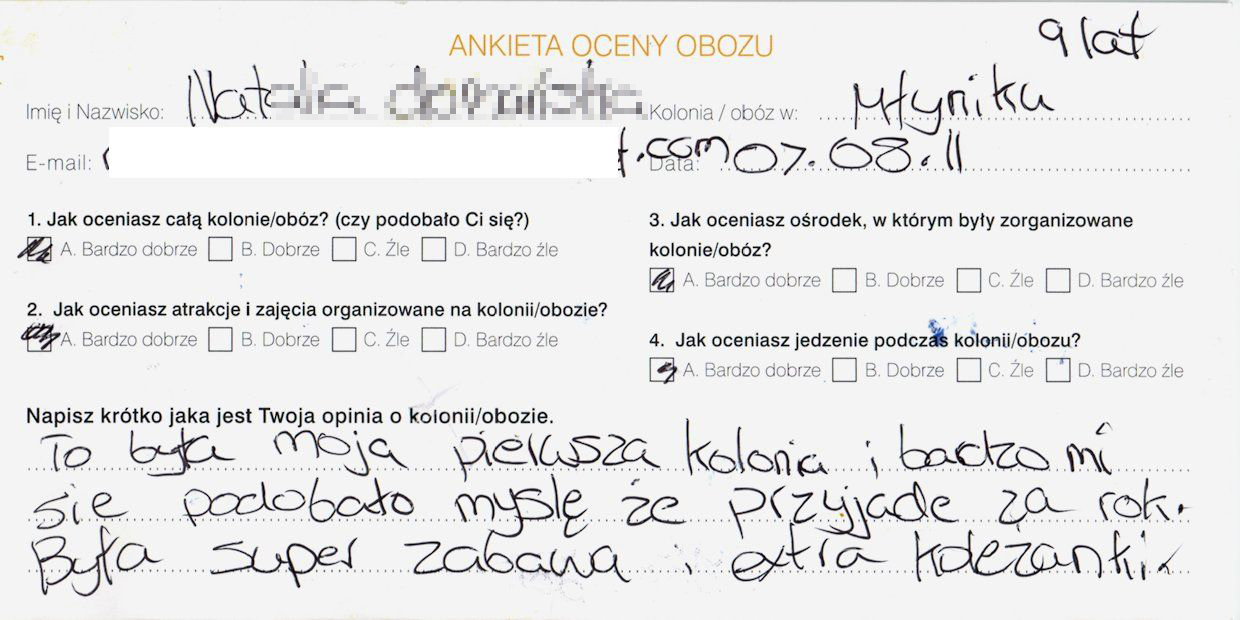 ANKIETA OCENY OBOZU
9 lat
Imię i Nazwisko:
Kolonia / obóz w: Młyniku
E-mail: .com
Data: 07.08.11
1. Jak oceniasz całą kolonie/obóz? (czy podobało Ci się?)
A. Bardzo dobrze B. Dobrze C. Źle D. Bardzo źle
2. Jak oceniasz atrakcje i zajęcia organizowane na kolonii/obozie?
A. Bardzo dobrze B. Dobrze C. Źle D. Bardzo źle
3. Jak oceniasz ośrodek, w którym były zorganizowane
kolonie/obóz?
A. Bardzo dobrze B. Dobrze C. Źle D. Bardzo źle
4. Jak oceniasz jedzenie podczas kolonii/obozu?
A. Bardzo dobrze B. Dobrze C. Źle D. Bardzo źle
Napisz krótko jaka jest Twoja opinia o kolonii/obozie.
To była moja pierwsza kolonia i bardzo mi
sie podobało myslę że przyjade za rok.
Była super zabawa i extra koleżanki.